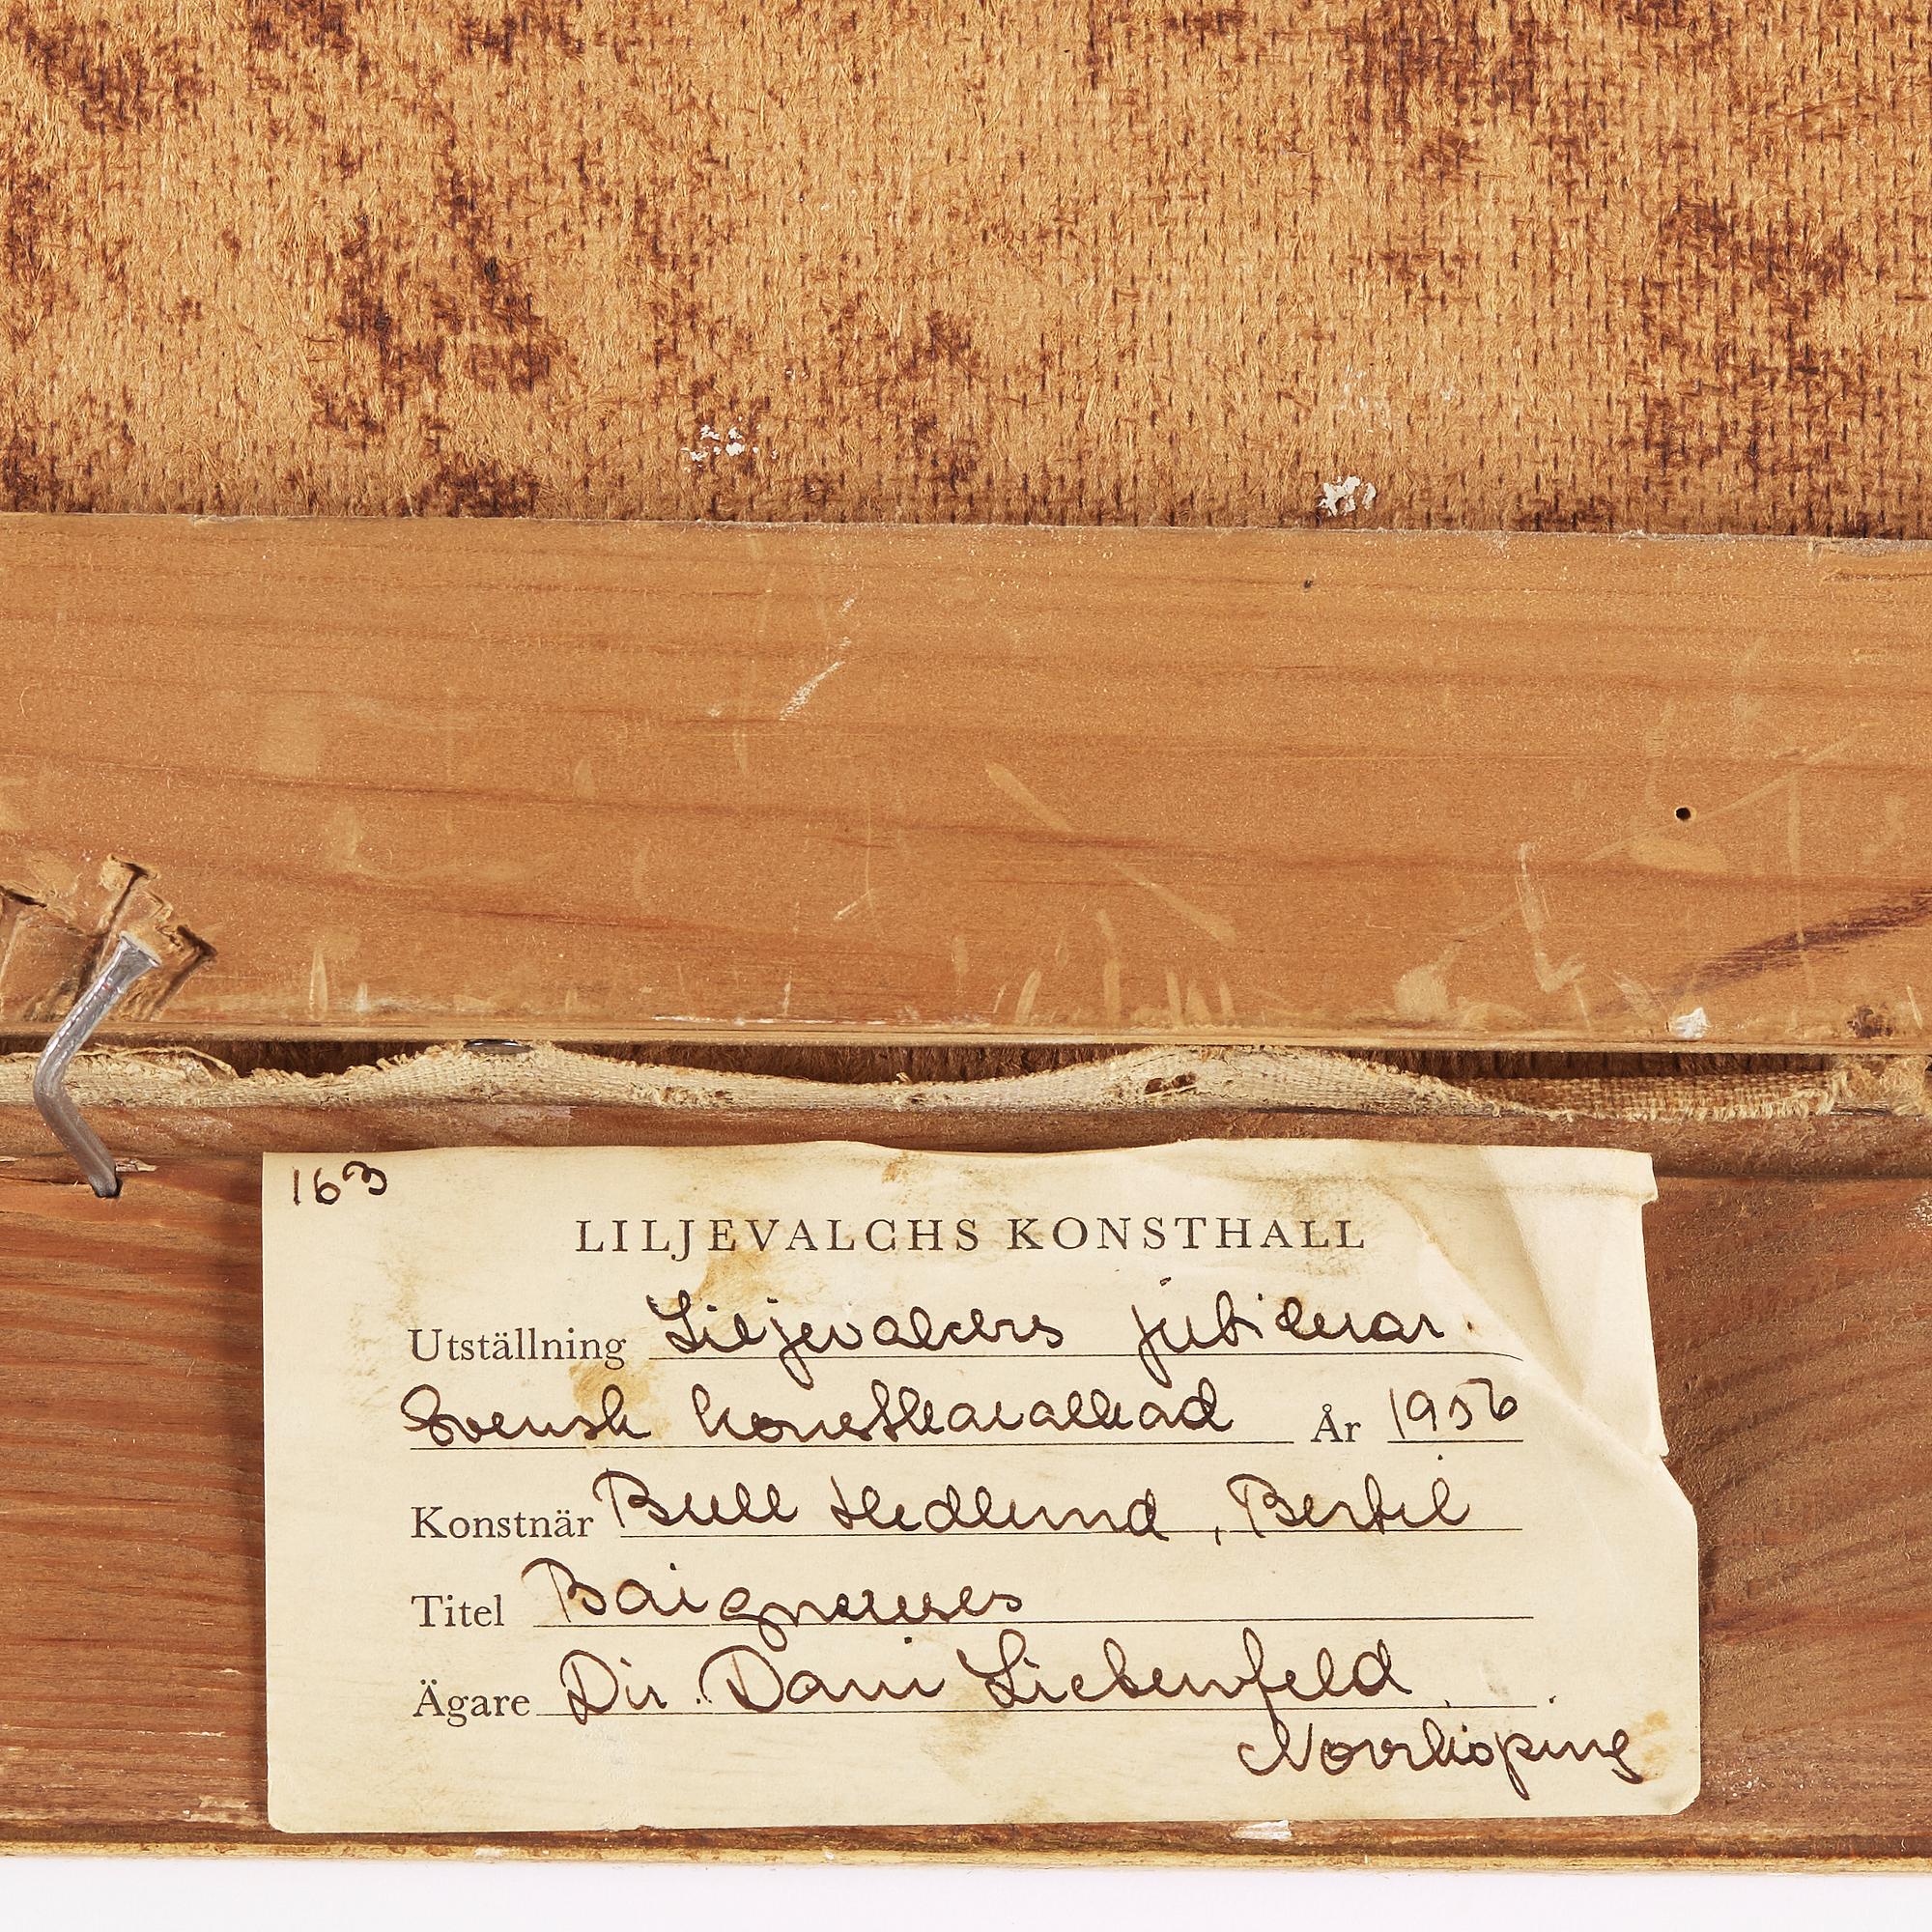 163
LILJEVALCHS KONSTHALL
Utställning Liljevalchs jubilerar.
Svensk konstkavalkad År 1956
Konstnär Bull Hedlund, Bertil
Titel Baigneuses
Ägare Dir. Dani Liebenfeld,
Norrköping